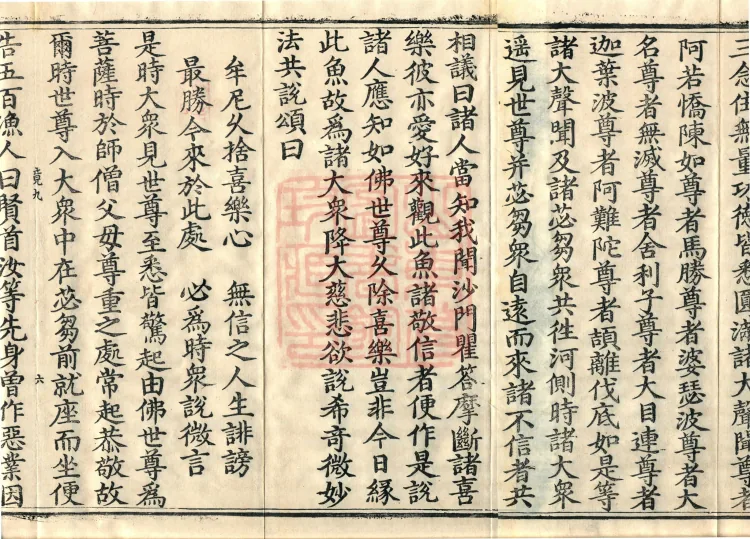 三念住無量功德皆悉圓滿諸大聲聞尊者
阿若憍陳如尊者馬勝尊者婆瑟波尊者大
名尊者無滅尊者舍利子尊者大目連尊者
迦葉波尊者阿難陀尊者頡離伐底如是等
諸大聲聞及諸苾芻衆共往河側時諸大衆
遥見世尊并苾芻衆自遠而來諸不信者共
相議曰諸人當知我聞沙門瞿答摩斷諸喜
樂彼亦愛好來觀此魚諸敬信者便作是說
諸人應知如佛世尊久除喜樂豈非今日緣
此魚故爲諸大衆降大慈悲欲說希奇微妙
法共說頌曰
牟尼久捨喜樂心 無信之人生誹謗
最勝今來於此處 必爲時衆說微言
是時大衆見世尊至悉皆驚起由佛世尊爲
菩薩時於師僧父母尊重之處常起恭敬故
竟九 六
爾時世尊入大衆中在苾芻前就座而坐便
告五百漁人曰賢首汝等先身曾作惡業因